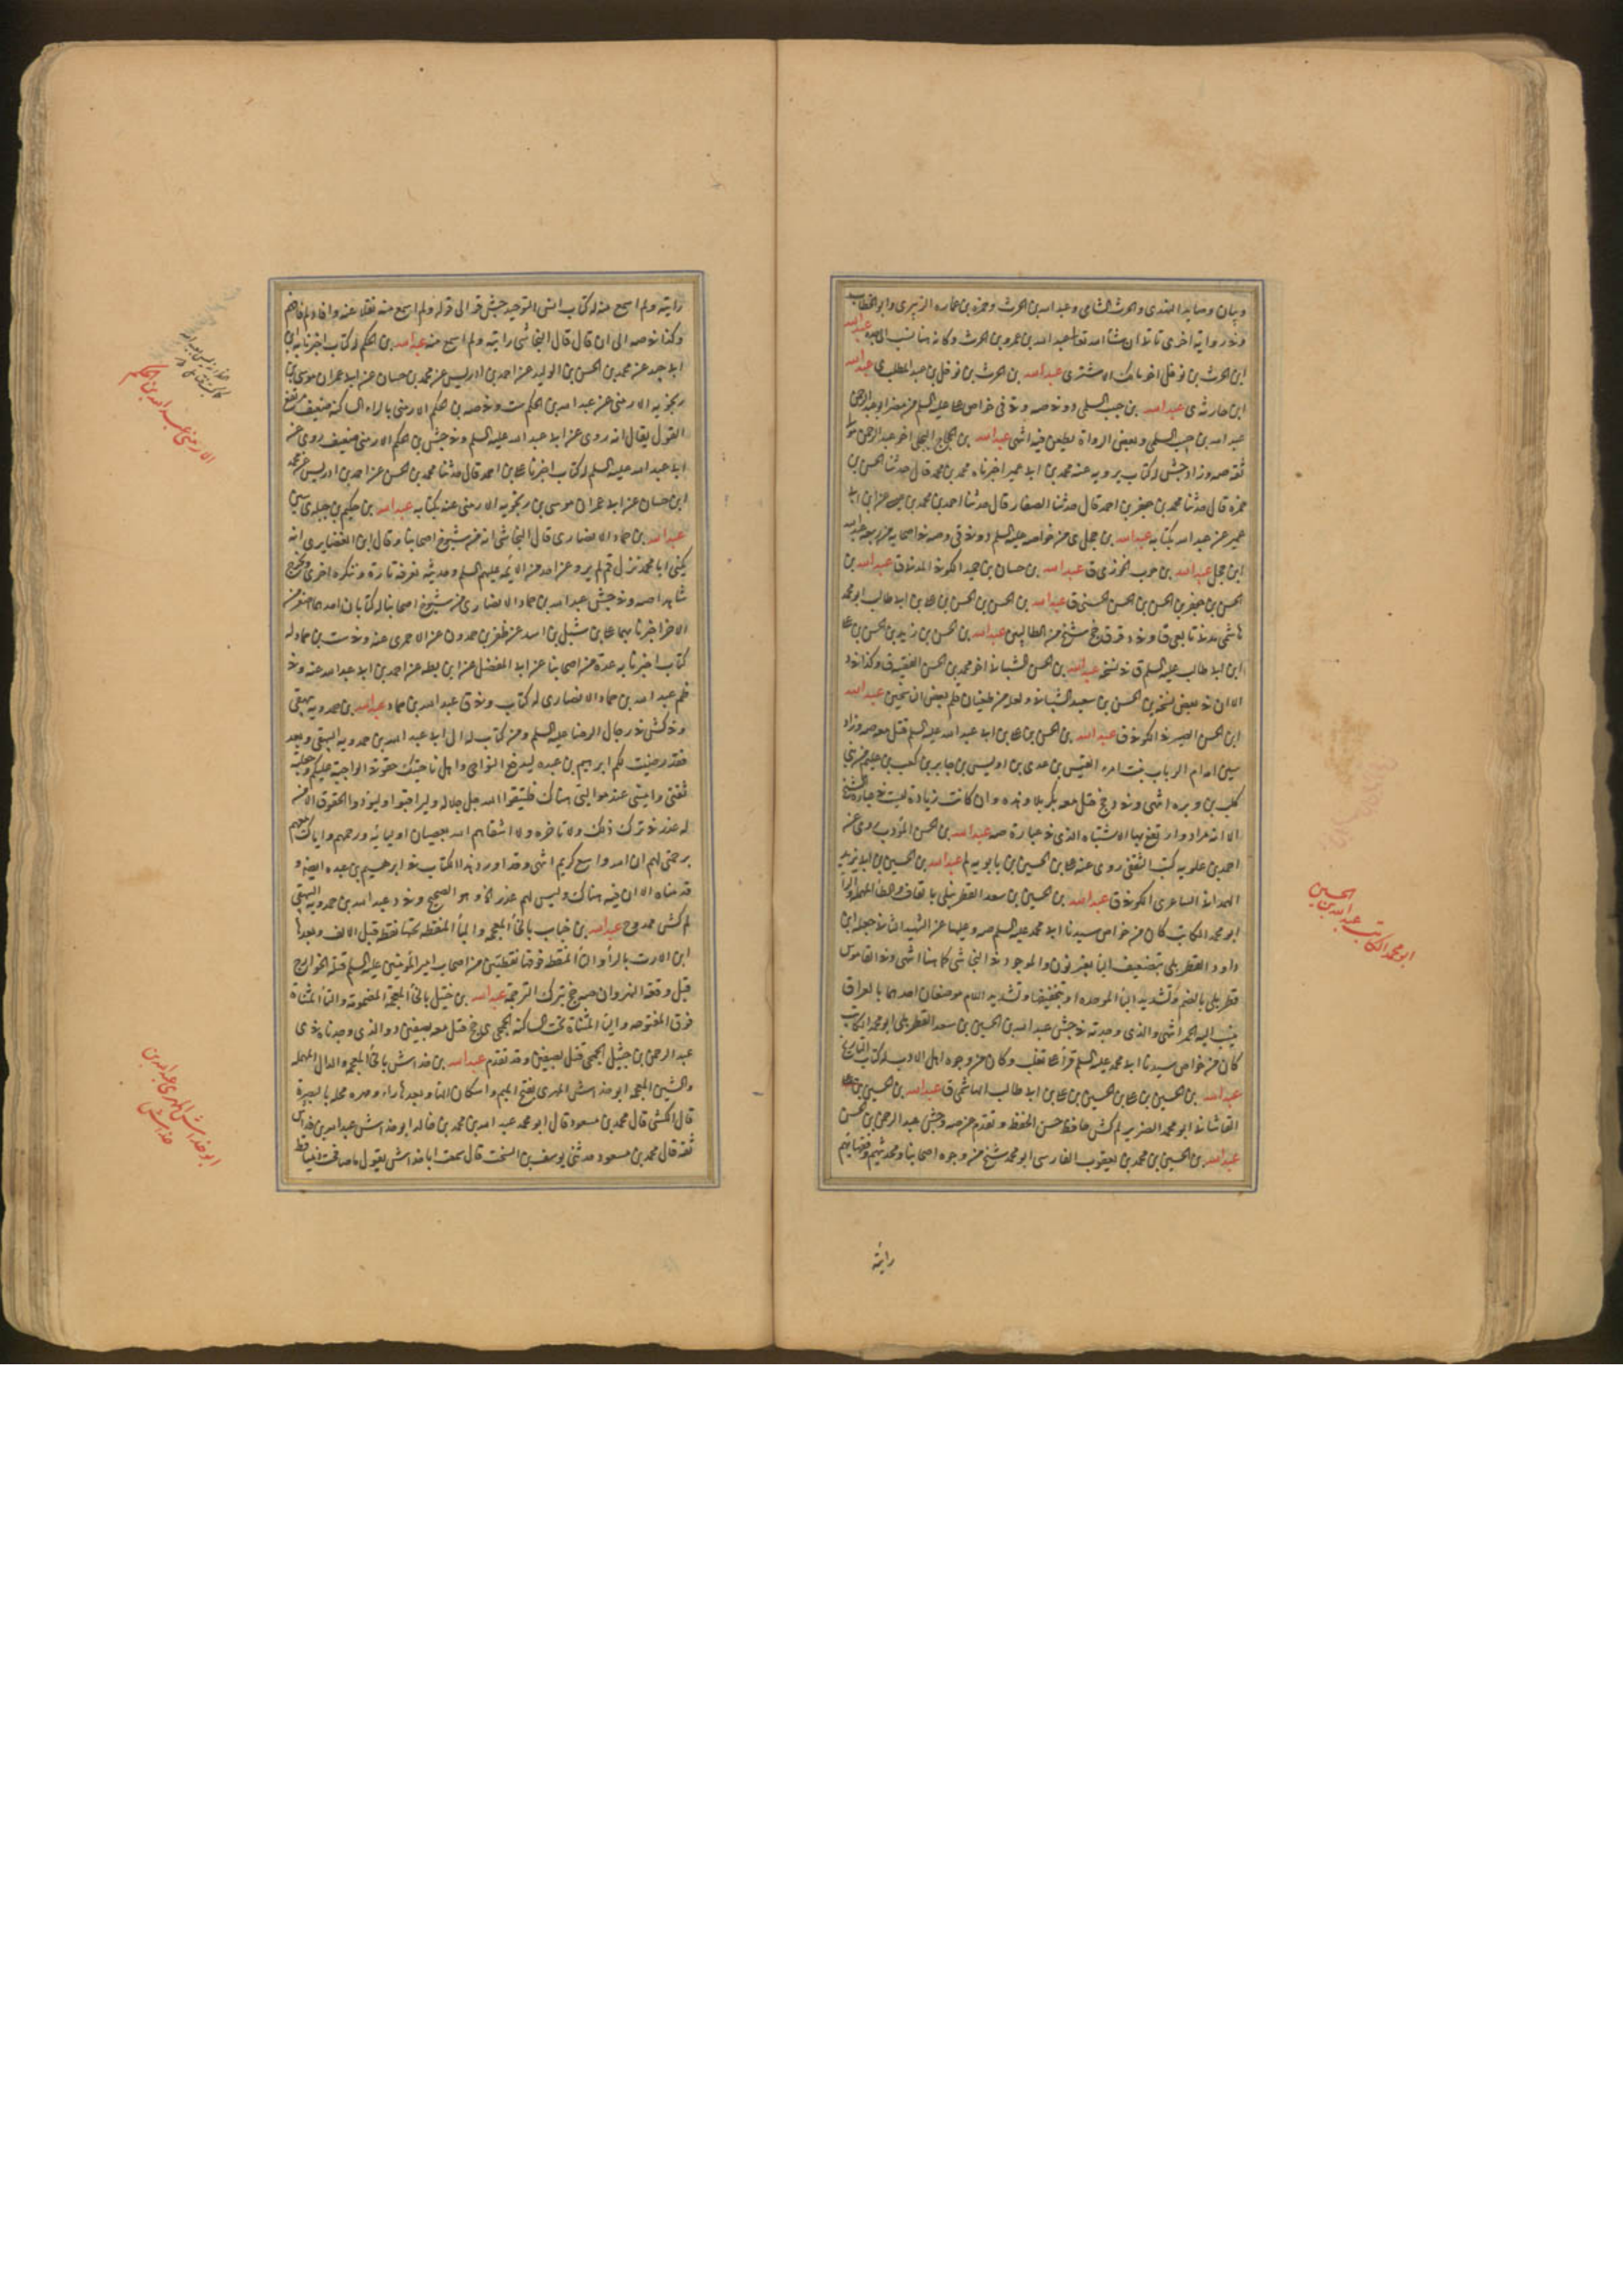 وبيان وصايد النهدى والحرث الشامى وعبد الله بن الحرث وحمزة بن عماره الزبيرى وابو الخطاب
وفى رواية اخرى تأتى ان شاء الله تعالى عبد الله بن عمرو بن الحرث وكانه هنا نسب الى جده عبد الله
ابن الحرث بن نوفل اخو مالك الاشتر ى عبد الله بن الحرث بن نوفل بن عبد المطلب ى عبد الله
ابن حارثه ى عبد الله بن حبيب السلمى د وفى صه وفى قى خواص على عليه السلم من مضر ابو عبد الرحمن
عبد الله بن حبيب السلمى وبعض الرواة يطعن فيه انتهى عبد الله بن الحجاج البجلى اخو عبد الرحمن مولى
ثقة صه وزاد جش له كتاب يرويه عنه محمد بن ابى عمير اخبرناه محمد بن محمد قال حدثنا الحسن بن
حمزة قال حدثنا محمد بن جعفر بن احمد قال حدثنا الصفار قال حدثنا احمد بن محمد بن عيسى عن ابن ابى
عمير عن عبد الله بكتابه عبد الله بن حجل ى من خواصه عليه السلم د وفى قى وصه فى اصحابه من ربيعة عبد الله
ابن حجل عبد الله بن حرب الجوزى ق عبد الله بن حسان بن حميد الكوفى المدنى ق عبد الله بن
الحسن بن جعفر بن الحسن بن الحسن الحسنى ق عبد الله بن الحسن بن الحسن بن على بن ابى طالب ابو محمد
هاشمى مدنى تابعى ق وفى د قر ق جخ شيخ من الطالبيين عبد الله بن الحسن بن زيد بن الحسن بن على
ابن ابى طالب عليه السلم ق فى نسخة عبد الله بن الحسن الشيبانى اخو محمد بن الحسن الفقيه ق وكذا فى د
الا ان فى بعض نسخه بن الحسن بن سعيد الشيبانى ولعله من طغيان قلم بعض الناسخين عبد الله
ابن الحسن الصيرفى الكوفى ق عبد الله بن الحسن بن على بن ابى عبد الله عليه السلم قتل معه صه وزاد
سين امه ام الرباب بنت امرء القيس بن عدى بن اويس بن جابر بن كعب بن عليم من بنى
كلب بن وبره انتهى وفى د جخ قتل معه بكربلا وهذه وان كانت زيادة ليست فى عبارة الشيخ
الا انه مراد واد تفع بها الاشتباه الذى فى عبارة صه عبد الله بن الحسن المؤدب روى عنه
احمد بن علويه كتب الثقفى روى عنه على بن الحسين بن بابويه لم عبد الله بن الحسين بن ابى يزيد
الهمدانى الشاعرى الكوفى ق عبد الله بن الحسين بن سعد القطربلى بالقاف والطاء المهملة والراء
ابو محمد الكاتب كان من خواص سيدنا ابى محمد عليه السلم صه وعليها عن الشهيد الثانى جعله ابن
داود القطربلى بتضعيف الباء بغير نون والموجود فى النجاشى كما هنا انتهى وفى القاموس
قطربلى بالضم وتشديد الباء الموحده او بتخفيفها وتشديد اللام موضعان احدهما بالعراق
ينسب اليه الخمر انتهى والذى وجدته فى جش عبد الله بن الحسين بن سعد القطربلى ابو محمد الكاتب
كان من خواص سيدنا ابى محمد عليه السلم قرأ على ثعلب وكان من وجوه اهل الادب له كتاب التاريخ
عبد الله بن الحسين بن على بن الحسين بن على بن ابى طالب الهاشمى ق عبد الله بن الحسين بن على
القاشانى ابو محمد الضرير لم كش حافظ حسن الحفظ وتقدم عن صه وجش عبد الرحمن بن الحسن
عبد الله بن الحسين بن محمد بن يعقوب الفارسى ابو محمد شيخ من وجوه اصحابنا ومحدثيهم وفقهائهم
رأيته
ابو محمد الكاتب عبد الله بن الحسين
رايته ولم اسمع منه له كتاب انس التوحيد جش قد الى قوله ولم اسمع منه نقلا عنه وافاد لم فافهم
وكذا فى صه الى ان قال قال النجاشى رايته ولم اسمع منه عبد الله بن الحكم له كتاب اخبرنا به ابن
ابى جيد عن محمد بن الحسن بن الوليد عن احمد بن ادريس عن محمد بن حسان عن ابى عمران موسى بن
رنجويه الارمنى عن عبد الله بن الحكم ست وفى صه بن الحكم الارمنى بالراء الساكنة ضعيف مرتفع
القول يقال انه روى عن ابى عبد الله عليه السلم وفى جش بن الحكم الارمنى ضعيف روى عن
ابى عبد الله عليه السلم له كتاب اخبرنا على بن احمد قال حدثنا محمد بن الحسن عن احمد بن ادريس عن محمد
ابن حسان عن ابى عمران موسى بن رنجويه الارمنى عنه بكتابه عبد الله بن حكيم بن جبلة ى سين
عبد الله بن حماد الانصارى قال النجاشى انه من شيوخ اصحابنا وقال ابن الغضايرى انه
يكنى ابا محمد نزل قم لم يرو عن احد من الائمه عليهم السلم وحديثه نعرفه تارة وننكره اخرى ويخرج
شاهدا صه وفى جش عبد الله بن حماد الانصارى من شيوخ اصحابنا له كتابان احدهما اصغر من
الاخر اخبرنا بهما على بن شبل بن اسد عن ظفر بن حمدون عن الاحمرى عنه وفى ست بن حماد له
كتاب اخبرنا به عدة من اصحابنا عن ابى المفضل عن ابن بطه عن احمد بن ابى عبد الله عنه وفى
ظم عبد الله بن حماد الانصارى له كتاب وفى ق عبد الله بن حماد عبد الله بن حمدويه بيهقى
وفى كش فى رجال الرضا عليه السلم ومن كتاب له الى ابى عبد الله بن حمدويه البيهقى وبعد
فقد نصبت لكم ابرهيم بن عبده ليدفع النواحى واهل ناحيتك حقوقى الواجبة عليكم وجعلته
ثقتى وامينى عند موالى هناك فليتقوا الله جل جلاله وليراقبوا وليؤدوا الحقوق فليس
لهم عذر فى ترك ذلك ولا تاخيره ولا اشقاهم الله بعصيان اوليائه ورحمهم واياك معهم
برحمتى لهم ان الله واسع كريم انتهى وقد اورد هذا الكتاب فى ابرهيم بن عبده ايضا و
قدمناه الا ان فيه هناك وليس لهم عذر الخ وهو الصحيح وفى د عبد الله بن حمدويه البيهقى
لم كش ممدوح عبد الله بن خباب بالخاء المعجمه والباء المنقطه تحتها نقطة قبل الالف وبعدها
ابن الارت بالراء والتاء المنقطه فوقها نقطتين من اصحاب امير المؤمنين عليه السلم قتله الخوارج
قبل وقعة النهروان صه جخ بترك الترجمة عبد الله بن خثيل بالخاء المعجمة المضمومة والتاء المثناة
فوق المفتوحة والياء المثناة تحت الساكنة الجمحى ى جخ قتل معه بصفين د والذى وجدناه فى ى
عبد الرحمن بن خثيل الجمحى قتل بصفين وقد تقدم عبد الله بن خداش بالخاء المعجمه والدال المهمله
والشين المعجمه ابو خداش المهرى بفتح الميم واسكان الهاء وبعدها راء وصره محلة بالبصرة
قال الكشى قال محمد بن مسعود قال ابو محمد عبد الله بن محمد بن خالد ابو خداش عبد الله بن خداش
ثقة قال محمد بن مسعود حدثنى يوسف بن السخت قال سمعت ابا خداش يقول ما صافحت ذميا قط
الارمنى عبد الله بن الحكم
ابو خداش المهرى عبد الله بن خداش